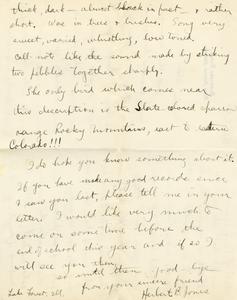 thick, dark - almost black in part - rather
short. Was in trees & bushes. Song very
sweet, varied, whistling, low toned.
Call note like the sound made by striking
two pebbles together sharply.
The only bird which comes near
this description is the Slate colored sparrow
range Rocky Mountains, east to eastern
Colorado!!!
I do hope you know something about it.
If you have made any good records since
I saw you last, please tell me in your
letter. I would like very much to
come on some time before the
end of school this year and if so I
will see you then,
so until then good-bye
from your sincere friend
Lake Forest, Ill. Herbert K. Jones